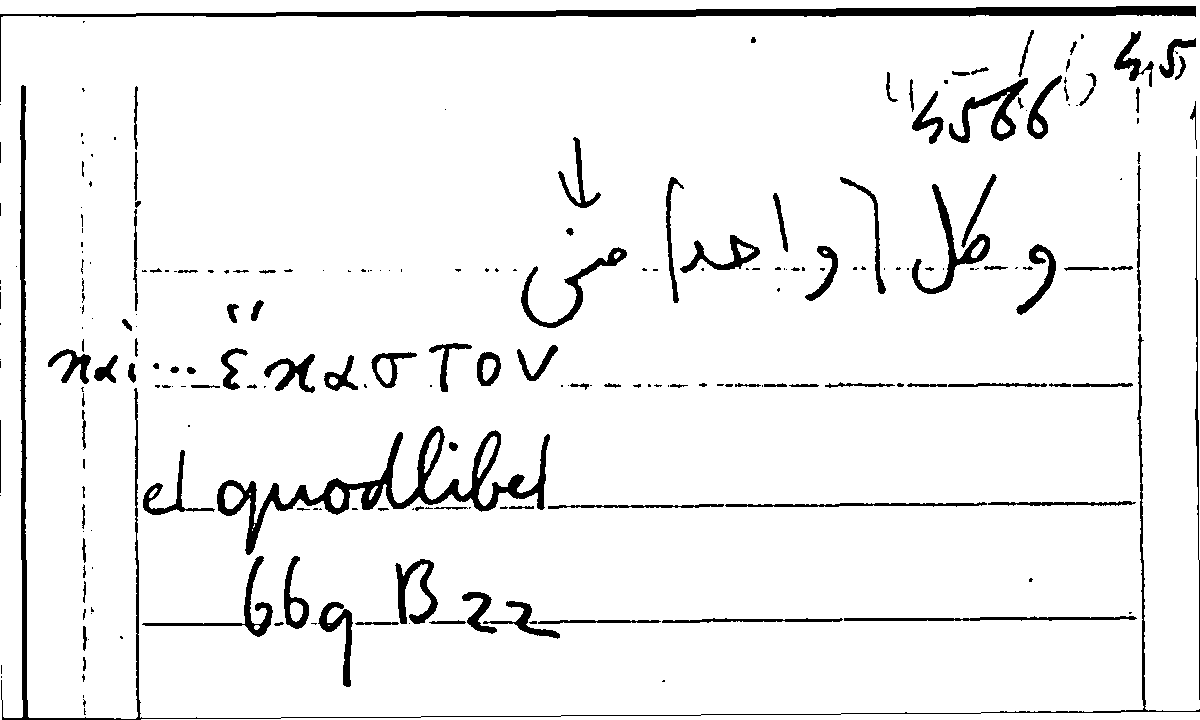 4566
وكل [واحد] من
καὶ... ἕκαστον
et quodlibet
669 B 22